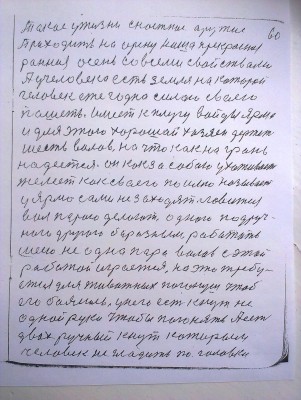 60
Такое у жизни счастье другие
Приходит на смену наша прекрасная
ранняя осень со всеми свойствами
А у человека есть земля на которой
человек ежегодно силою своего
пашеть. Имеет к плугу
и для этого хороший хозяин держит
шесть валов, на что как на грань
надеется. он как за собою ухаживает
жалеет как своего по имю называет
у ярмо сами не заходят. ловится
вал первого делают. одного подруч-
ного другого баразным работать
шею не одна пара валов с этой
работой играется, на это требу-
ется для животных погонщик чтоб
его баялись, у него есть кнут не
одной руки чтобы погонять. А есть
двух ручный кнут которым
человек не гладить по головки